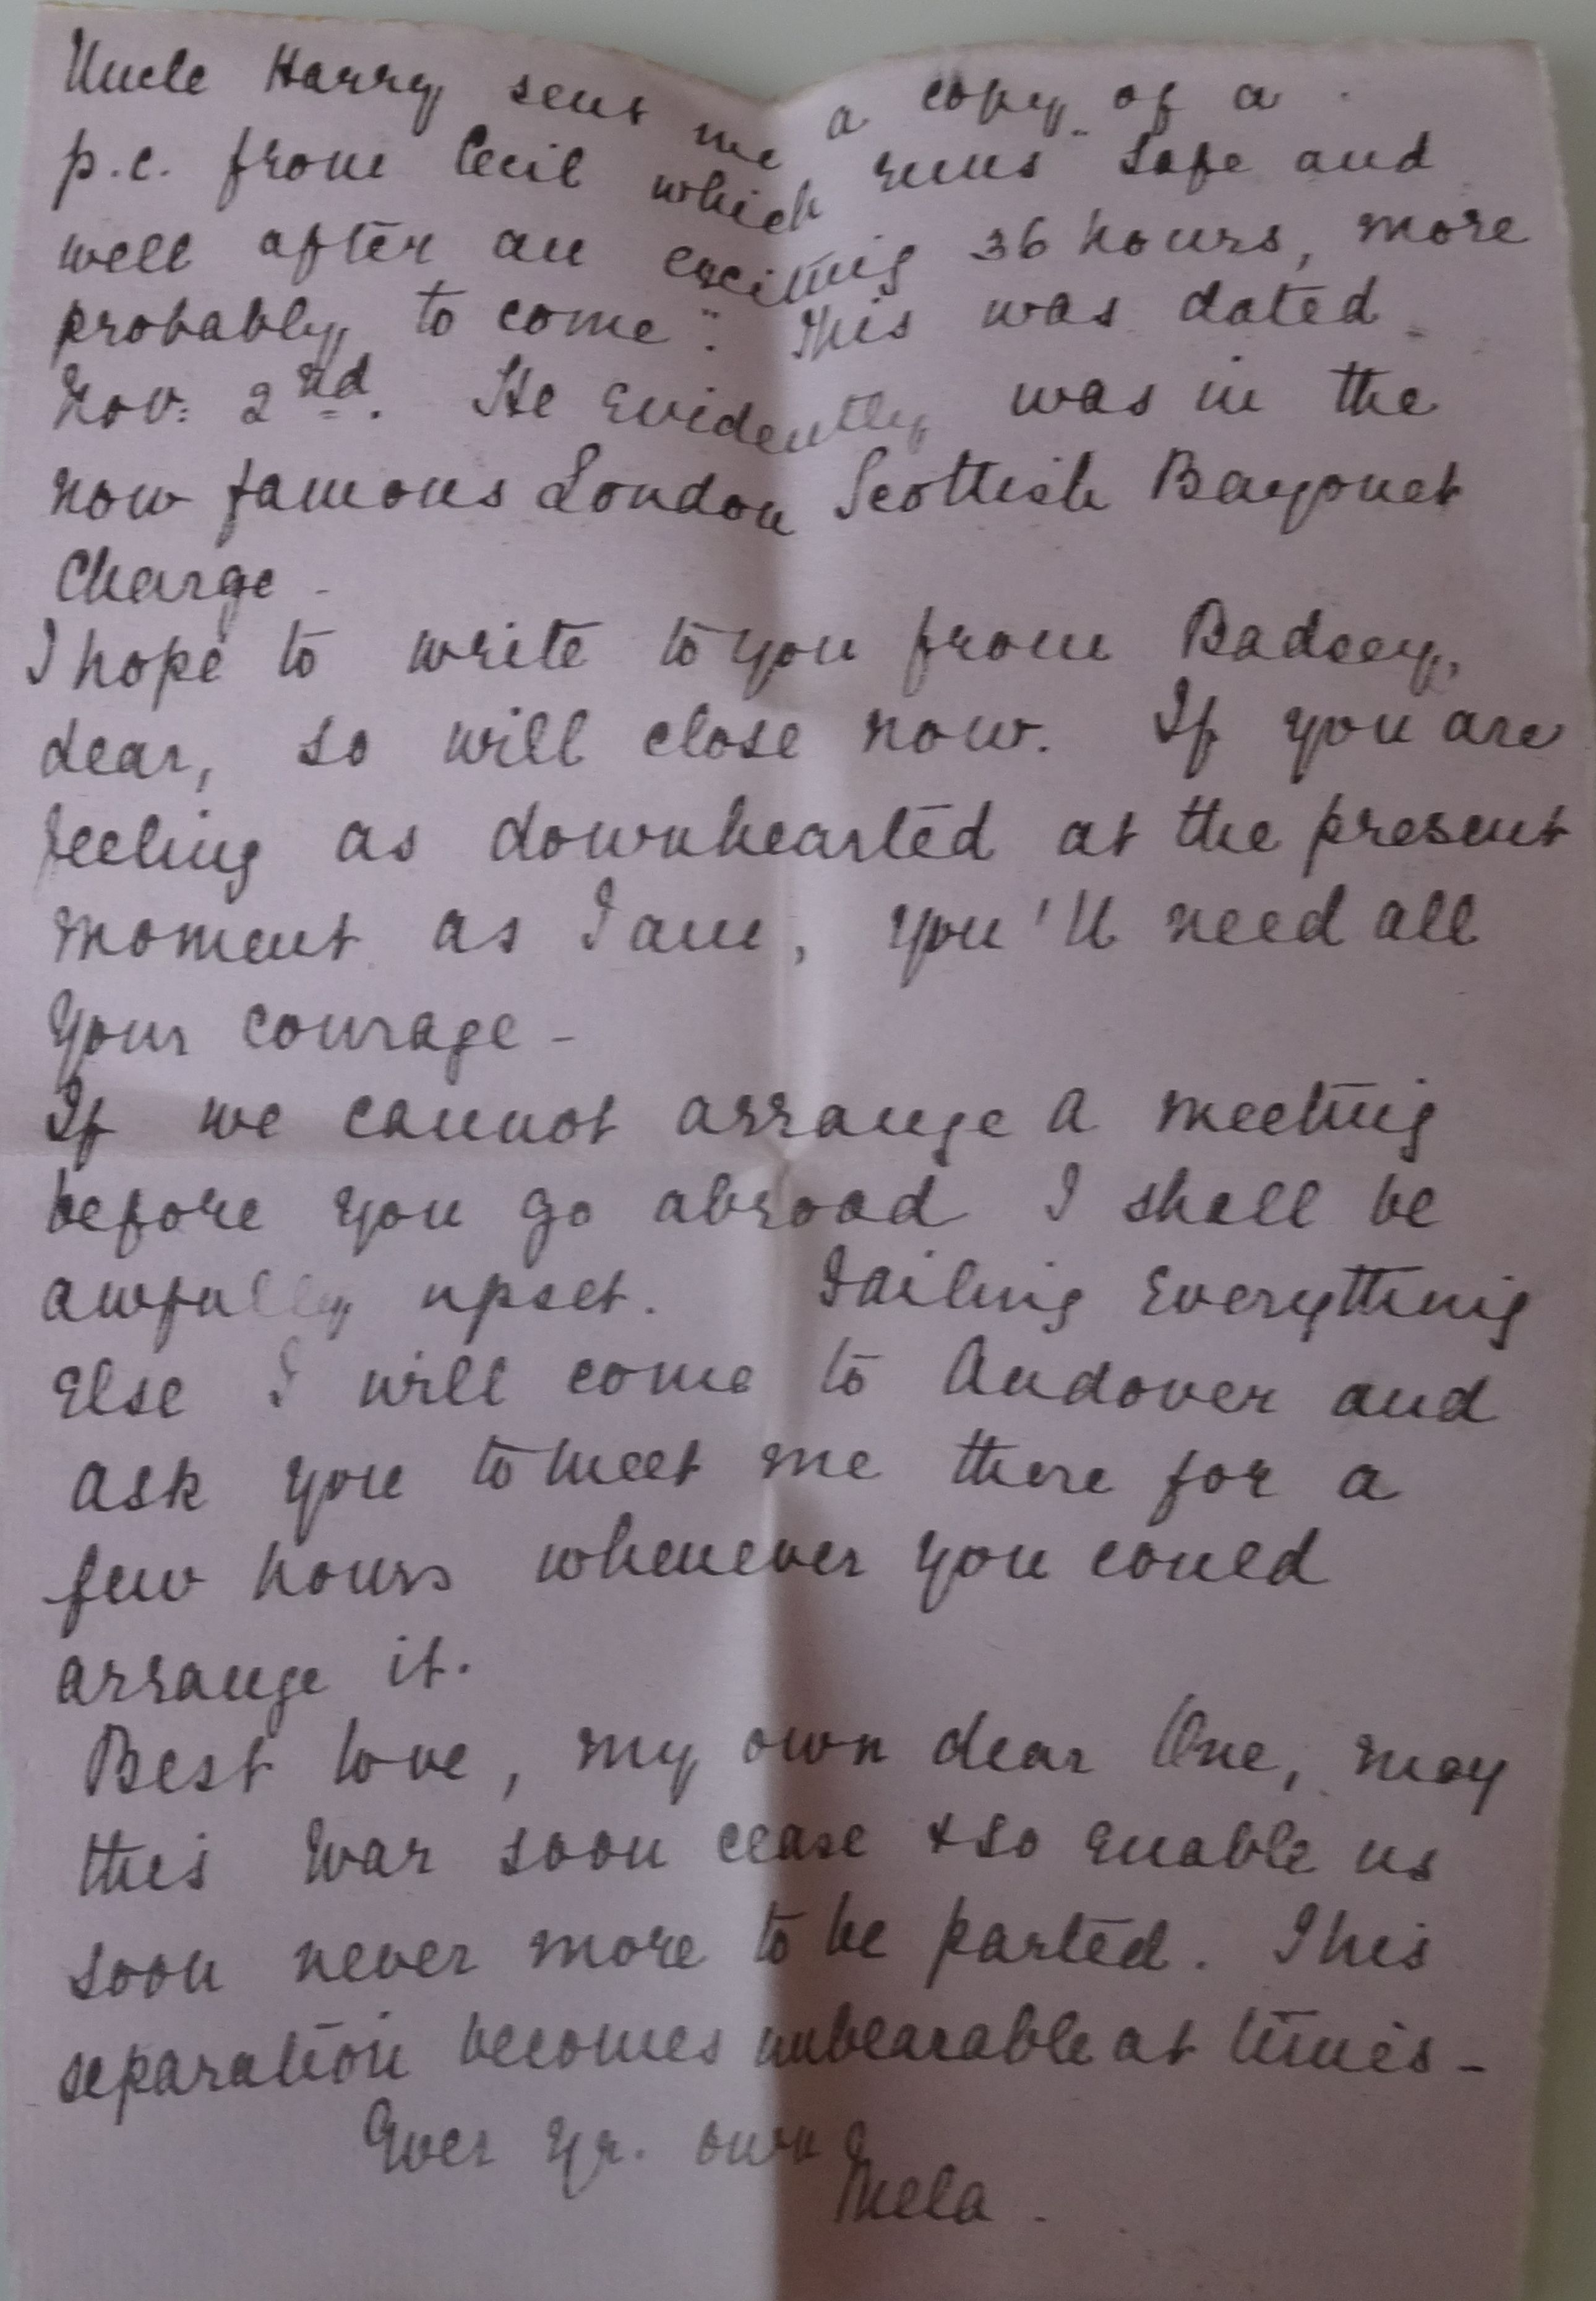 Uncle Harry sent me a copy of a
p.c. from Cecil which runs "Safe and
well after an exciting 36 hours, more
probably to come". This was dated
Nov: 2nd. He evidently was in the
now famous London Scottish Bayonet
Charge -
I hope to write to you from Badsey,
dear, so will close now. If you are
feeling as downhearted at the present
moment as I am, you'll need all
your courage -
If we cannot arrange a meeting
before you go abroad I shall be
awfully upset. Failing everything
else I will come to Andover and
ask you to meet me there for a
few hours whenever you could
arrange it.
Best love, my own dear One, may
this War soon cease & so enable us
soon never more to be parted. This
separation becomes unbearable at times -
Ever yr. own
Mela.